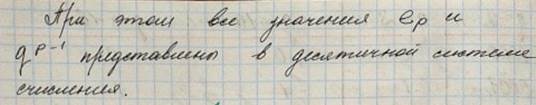 При этом все значения eρ и
q^ρ-1 представлены в десятичной системе
счисления.